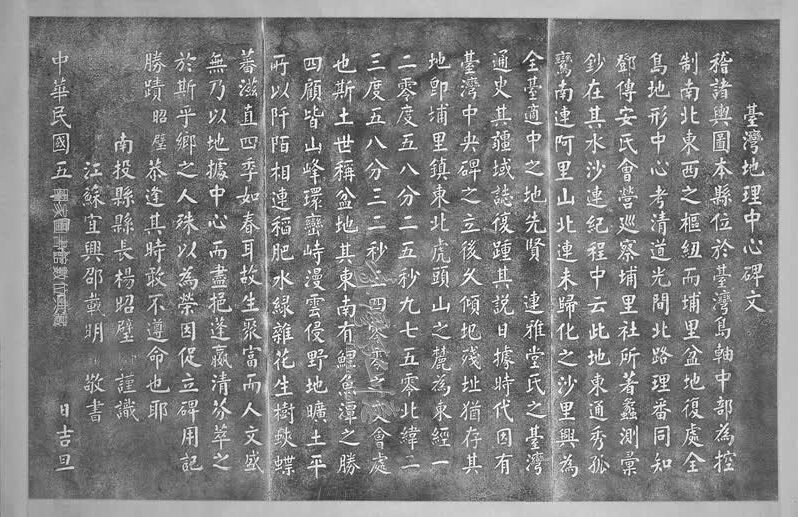 臺灣地理中心碑文
稽諸輿圖本縣位於臺灣島軸中部為控
制南北東西之樞紐而埔里盆地復處全
島地形中心考清道光間北路理番同知
鄧傳安氏會營巡察埔里社所著蠡測彙
鈔在其水沙連紀程中云此地東通秀孤
鸞南連阿里山北連未歸化之沙里興為
全臺適中之地先賢 連雅堂氏之臺灣
通史其疆域誌復踵其說日據時代因有
臺灣中央碑之立後久傾圮殘址猶存其
地即埔里鎮東北虎頭山之麓為東經一
二零度五八分二五秒九七五零北緯二
三度五八分三二秒三四零零之交會處
也斯土世稱盆地其東南有鯉魚潭之勝
四顧皆山峰環巒峙漫雲侵野地曠土平
所以阡陌相連稻肥水綠雜花生樹蛺蝶
蕃滋直四季如春耳故生聚富而人文盛
無乃以地據中心而盡挹蓬瀛清芬萃之
於斯平鄉之人殊以為榮因促立碑用記
勝蹟昭璧恭逢其時敢不遵命也耶
南投縣縣長楊昭璧謹識
江蘇宜興邵載明敬書
中華民國五 日吉旦